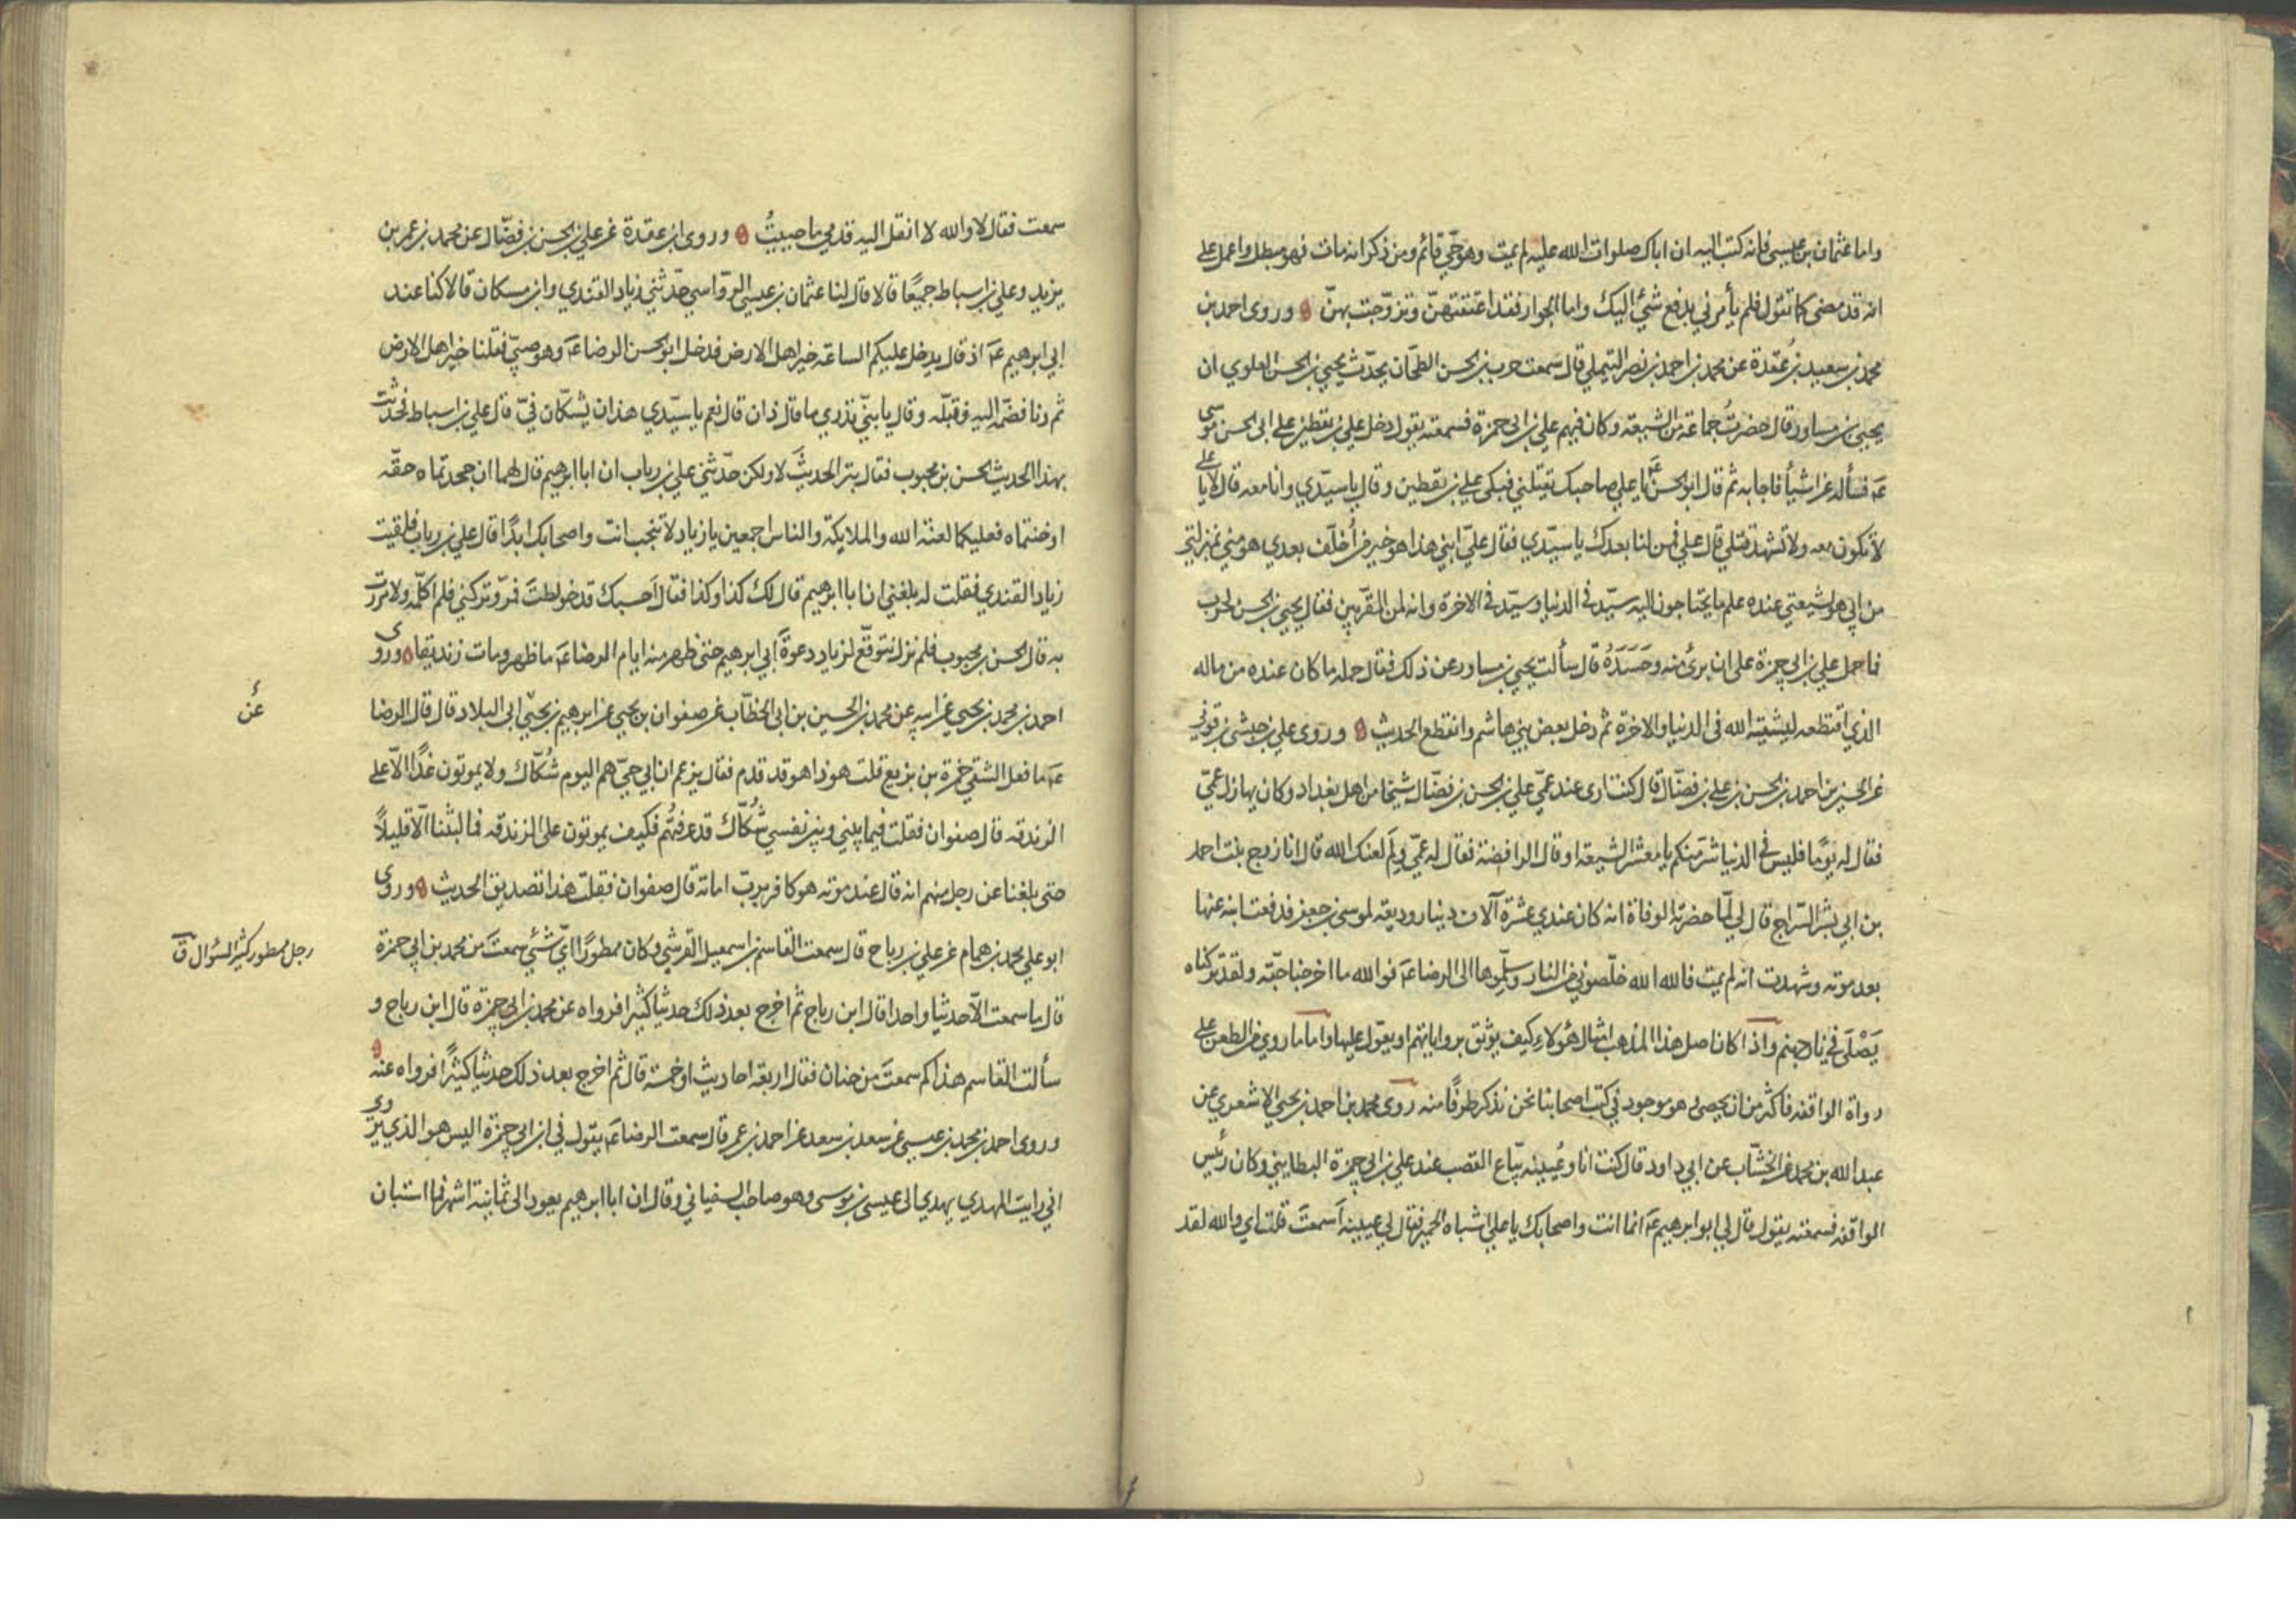 واما عثمان بن عيسى فانه كتب اليه ان اباك صلوات الله عليه لم يمت وهو حيّ قائم ومن ذكر انه مات فهو مبطل واعمل على
انه قد مضى كما تقول فلم يأمرني بدفع شيء اليك واما الجوار فقد اعتقتهنّ وتزوّجت بهنّ وروى احمد بن
محمد بن سعيد بن عُقدة عن محمد بن احمد بن نصر التيملي قال سمعت حرب بن الحسن الطحّان يحدّث يحيى بن الحسن العلوي ان
يحيى بن مساور قال حضرتُ جماعة من الشيعة وكان فيهم علي بن ابي حمزة فسمعته يقول دخل علي بن يقطين على ابي الحسن موسى
عَ فسأله عن اشياء فاجابه ثم قال ابو الحسن عَ يا علي صاحبك يقتلني فبكى علي بن يقطين وقال يا سيّدي وانا معه قال لا يا علي
لا تكون معه ولا تشهد قتلي قال علي فمن لنا بعدك يا سيّدي فقال عليّ ابني هذا هو خير من أُخلّف بعدي هو مني بمنزلتي
من ابي هو لشيعتي عنده علم ما يحتاجون اليه سيّد في الدنيا وسيّد في الاخرة وانه لمن المقرّبين فقال يحيى بن الحسن لحرب
فما حمل علي بن ابي حمزة على ان برئ منه وحَسَدَهُ قال سألت يحيى بن مساور عن ذلك فقال حمله ما كان عنده من ماله
الذي اقتطعه ليشقيه الله في الدنيا والاخرة ثم دخل بعض بني هاشم وانقطع الحديث وروى علي بن حبشي بن قوني
عن الحسين بن احمد بن الحسن بن علي بن فضّال قال كنت ارى عند عمّي علي بن الحسن بن فضّال شيخًا من اهل بغداد وكان يهازل عمّي
فقال له يومًا فليس في الدنيا شرّ منكم يا معشر الشيعة او قال الرافضة فقال له عمّي ولِمَ لعنك الله قال انا زوج بنت احمد
بن ابي بشر السّراج قال لي لمّا حضرته الوفاة انه كان عندي عشرة آلاف دينار وديعة لموسى بن جعفر فدفعت ابنه عنها
بعد موته وشهدت انه لم يمت فالله الله خلّصوني من النار وسلّموها الى الرضا عَ فوالله ما اخرجنا حبّة ولقد تركناه
يَصْلَى في نار جهنم واذا كان اصل هذا المذهب امثال هؤلاء كيف يوثق برواياتهم او يعوّل عليها واما ما روي من الطعن على
رواة الواقفه فاكثر من ان يحصى وهو موجود في كتب اصحابنا نحن نذكر طرفًا منه روى محمد بن احمد بن يحيى الاشعري عن
عبد الله بن محمد عن الخشّاب عن ابي داود قال كنت انا وعُيينه بيّاع القصب عند علي بن ابي حمزة البطايني وكان رئيس
الواقفه فسمعته يقول قال لي ابو ابرهيم عَ انما انت واصحابك يا علي اشباه الحمير فقال لي عيينه أسمعتَ قلت اي والله لقد
سمعت فقال لا والله لا انقل اليه قدمي ما حييتُ وروى ابن عقدة عن علي بن الحسن بن فضّال عن محمد بن عمر بن
يزيد وعلي بن اسباط جميعًا قالا قال لنا عثمان بن عيسى الروّاسي حدّثني زياد القندي وابن مسكان قالا كنا عند
ابي ابرهيم عَ اذ قال يدخل عليكم الساعة خير اهل الارض فدخل ابو الحسن الرضا عَ وهو صبيّ فقلنا خير اهل الارض
ثم دنا فضمّه اليه فقبّله وقال يا بنيّ تدري ما قال ذان قال نعم يا سيّدي هذان يشكّان فيّ قال علي بن اسباط فحدّثت
بهذا الحديث الحسن بن محبوب فقال بتر الحديثَ لا ولكن حدّثني علي بن رياب ان ابا ابرهيم قال لهما ان جحدتماه حقّه
او خنتماه فعليكما لعنة الله والملايكة والناس اجمعين يا زياد لا تنجب انت واصحابك ابدًا قال علي بن رياب فلقيت
زياد القندي فقلت له بلغني ان ابا ابرهيم قال لك كذا وكذا فقال أحسبك قد خولطتَ فمرّ وتركني فلم اكلّمه ولا مررت
به قال الحسن بن محبوب فلم نزل نتوقّع لزياد دعوة ابي ابرهيم حتى ظهر منه ايام الرضا عَ ما ظهر ومات زنديقا وروى
احمد بن محمد بن يحيى عن ابيه عن محمد بن الحسين بن ابي الخطّاب عن صفوان بن يحيى عن ابرهيم بن يحيى ابي البلاد قال قال الرضا
عن
عَ ما فعل الشقي حمزة بن بزيع قلت هوذا هو قد قدم فقال يزعم ان ابي حيّ هم اليوم شُكّاك ولا يموتون غدًا الّا على
الزندقه قال صفوان فقلت فيما بيني وبين نفسي شُكّاك قد عرفتُهم فكيف يموتون على الزندقه فما لبثنا الّا قليلاً
حتى بلغنا عن رجل منهم انه قال عند موته هو كافر بربّ اماته قال صفوان فقلت هذا تصديق الحديث وروى
ابو علي محمد بن همام عن علي بن رباح قال سمعت القاسم بن اسمعيل القرشي وكان ممطورًا ايّ شيء سمعتَ من محمد بن ابي حمزة
رجل ممطور كثير السؤال ق
قال ما سمعت الّا حديثا واحدا قال ابن رباح ثم اخرج بعد ذلك حديثا كثيرا فرواه عن محمد بن ابي حمزة قال ابن رباح و
سألت القاسم هذا كم سمعتَ من حنان فقال اربعة احاديث او خمسة قال ثم اخرج بعد ذلك حديثا كثيرًا فرواه عنه
وروى احمد بن محمد بن عيسى عن سعد بن سعد عن احمد بن عمر قال سمعت الرضا عَ يقول في ابن ابي حمزة اليس هو الذي يروي
اني رايت المهدي يهدي الى عيسى بن موسى وهو صاحب السفياني وقال ان ابا ابرهيم يعود الى ثمانية اشهر فما استبان